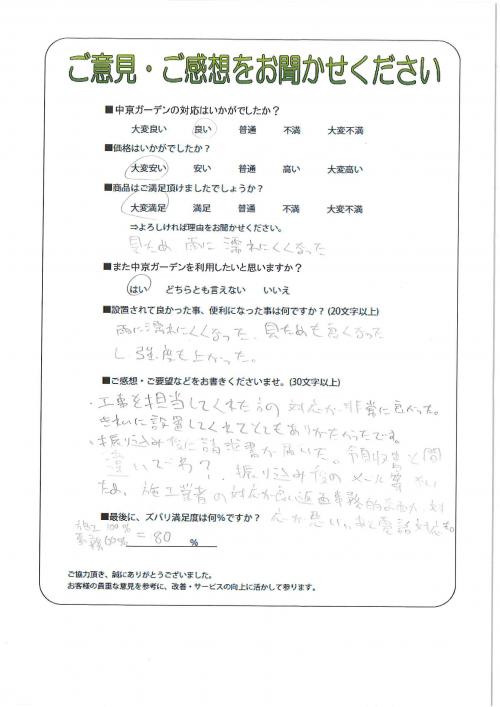 ご意見・ご感想をお聞かせください
■中京ガーデンの対応はいかがでしたか？
大変良い 良い 普通 不満 大変不満
■価格はいかがでしたか？
大変安い 安い 普通 高い 大変高い
■商品はご満足頂けましたでしょうか？
大変満足 満足 普通 不満 大変不満
⇒よろしければ理由をお聞かせください。
見ため 雨に濡れにくくなった
■また中京ガーデンを利用したいと思いますか？
はい どちらとも言えない いいえ
■設置されて良かった事、便利になった事は何ですか？(20文字以上)
雨に濡れにくくなった、見ためも良くなった
し 強度も上がった。
■ご感想・ご要望などをお書きくださいませ。(30文字以上)
・工事を担当してくれた方の対応が非常に良かった。
きれいに設置してくれてとてもありがたかったです。
・振り込み後に請求書が届いた。領収書と間
違いでわ？振り込み後のメール等ない
ため、施工業者の対応が良い反面事務的な面が、対
応が悪い。あと電話対応も。
■最後に、ズバリ満足度は何％ですか？
施工 100%
事務60% = 80 %
ご協力頂き、誠にありがとうございました。
お客様の貴重な意見を参考に、改善・サービスの向上に活かして参ります。